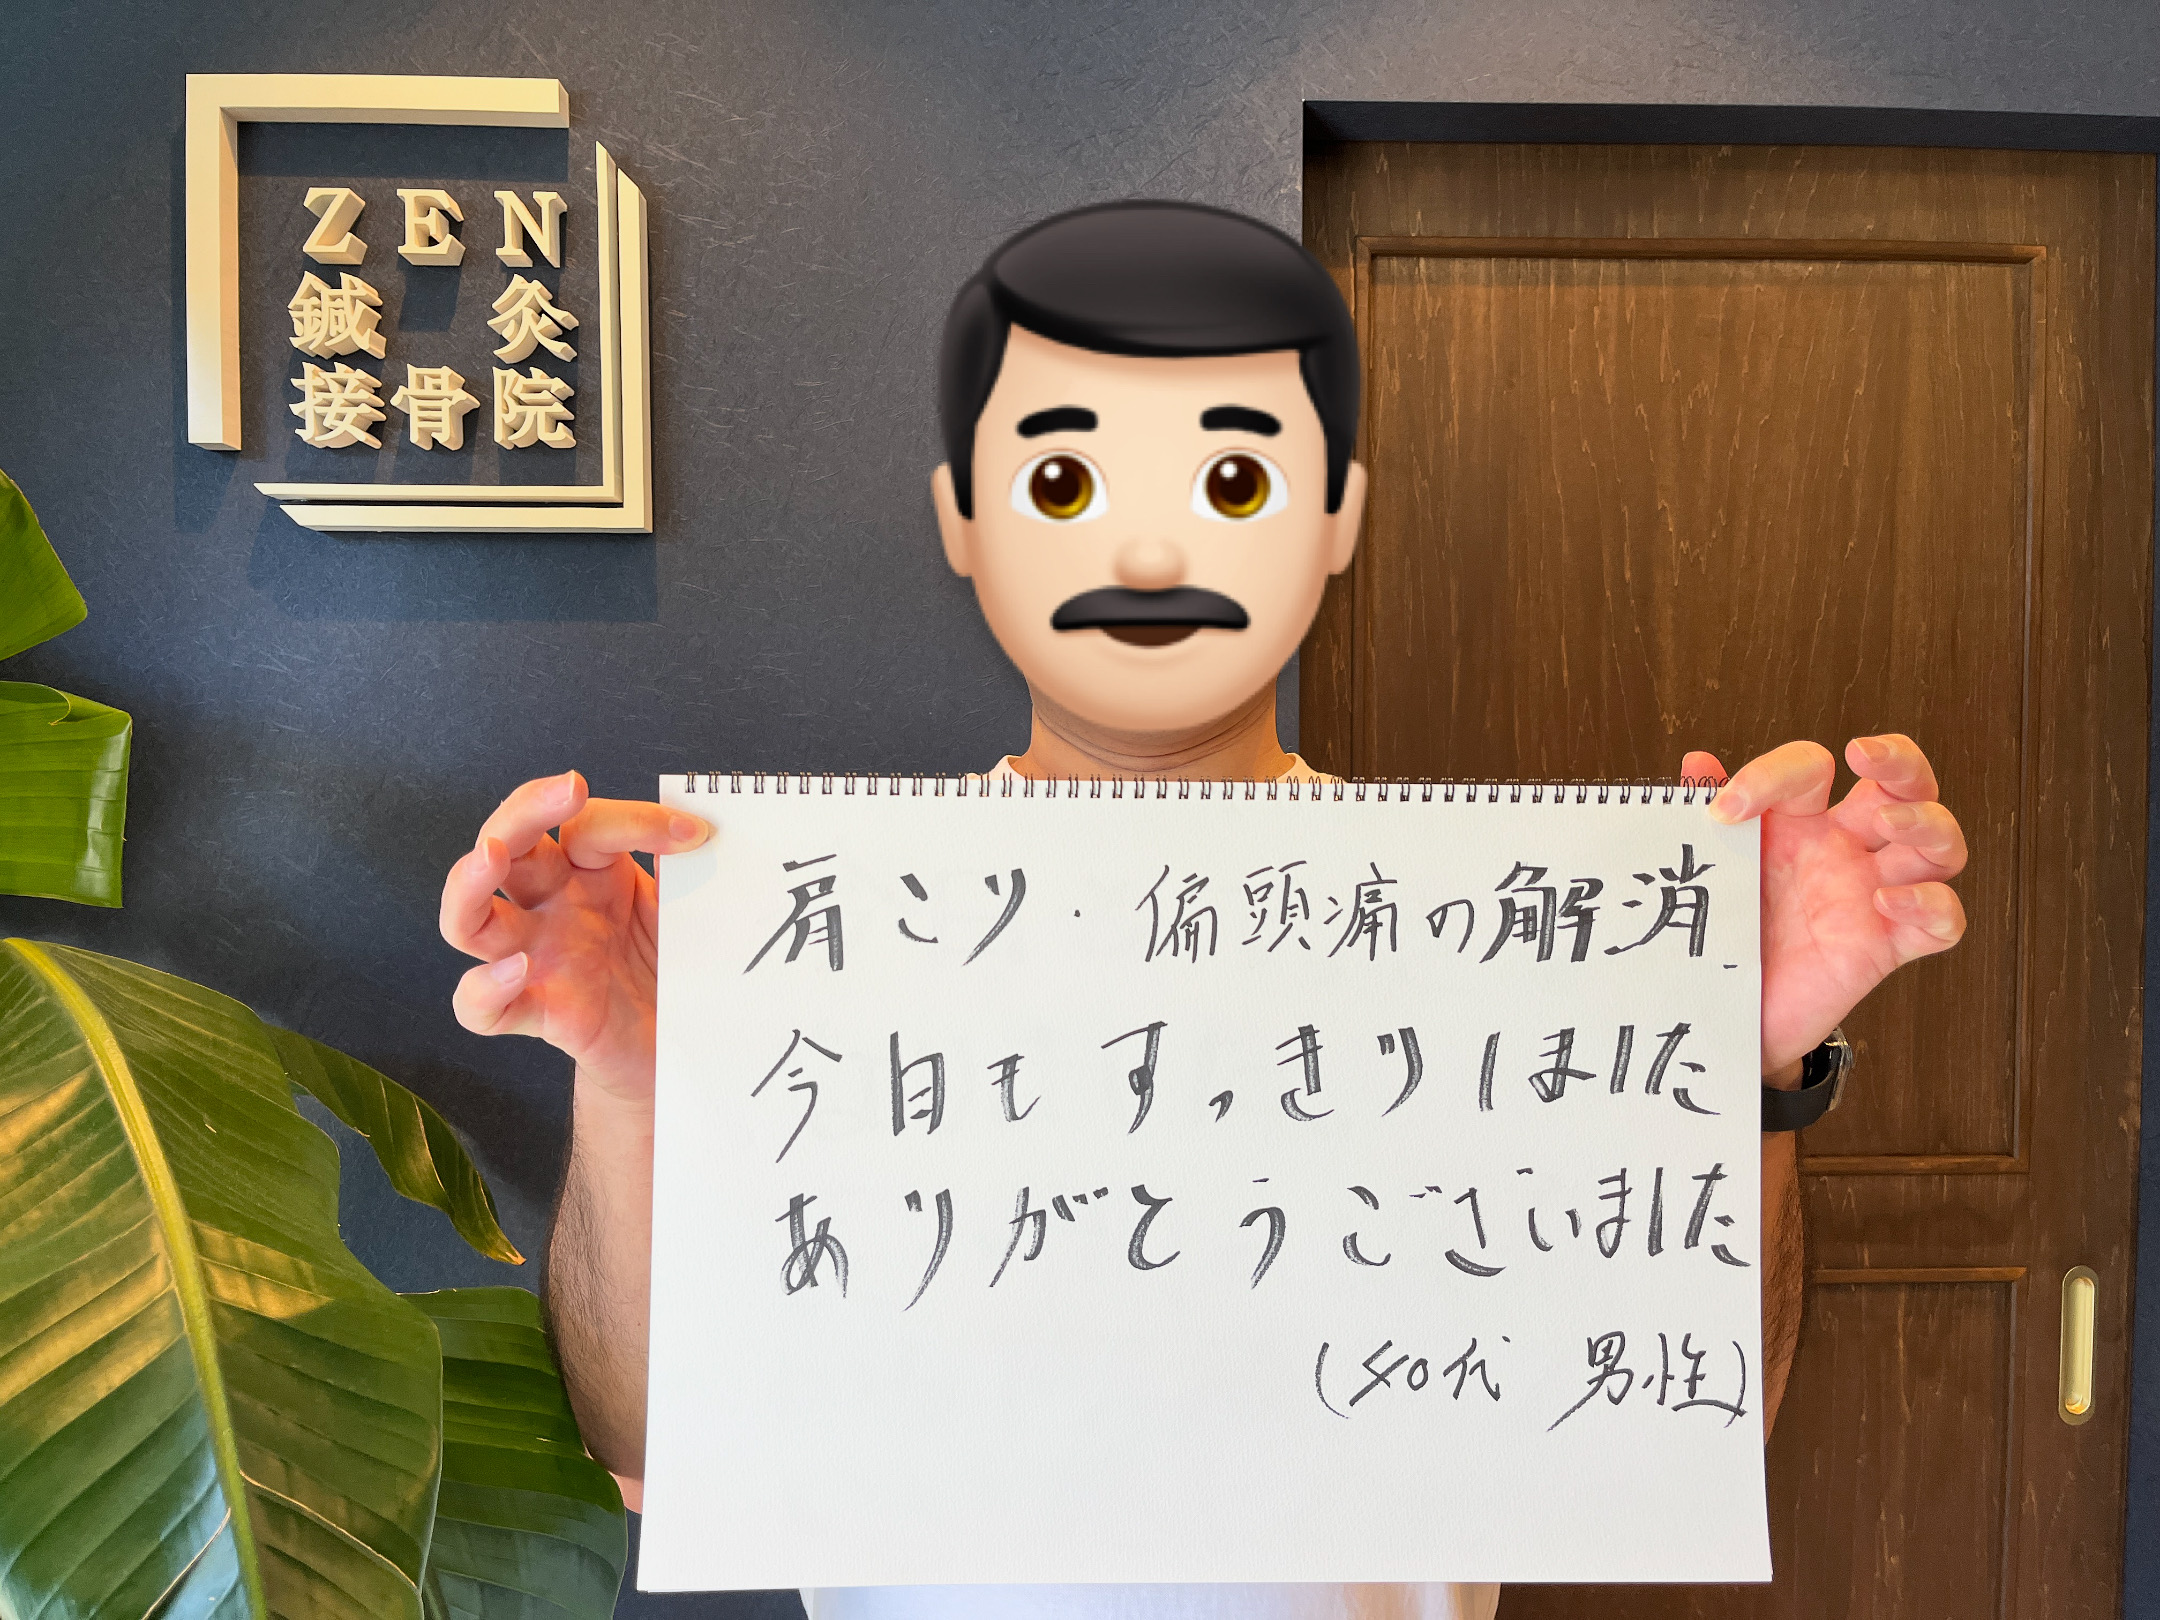 ZEN
鍼灸
接骨院
肩こり・偏頭痛の解消
今日もすっきりしました
ありがとうございました
(40代 男性)